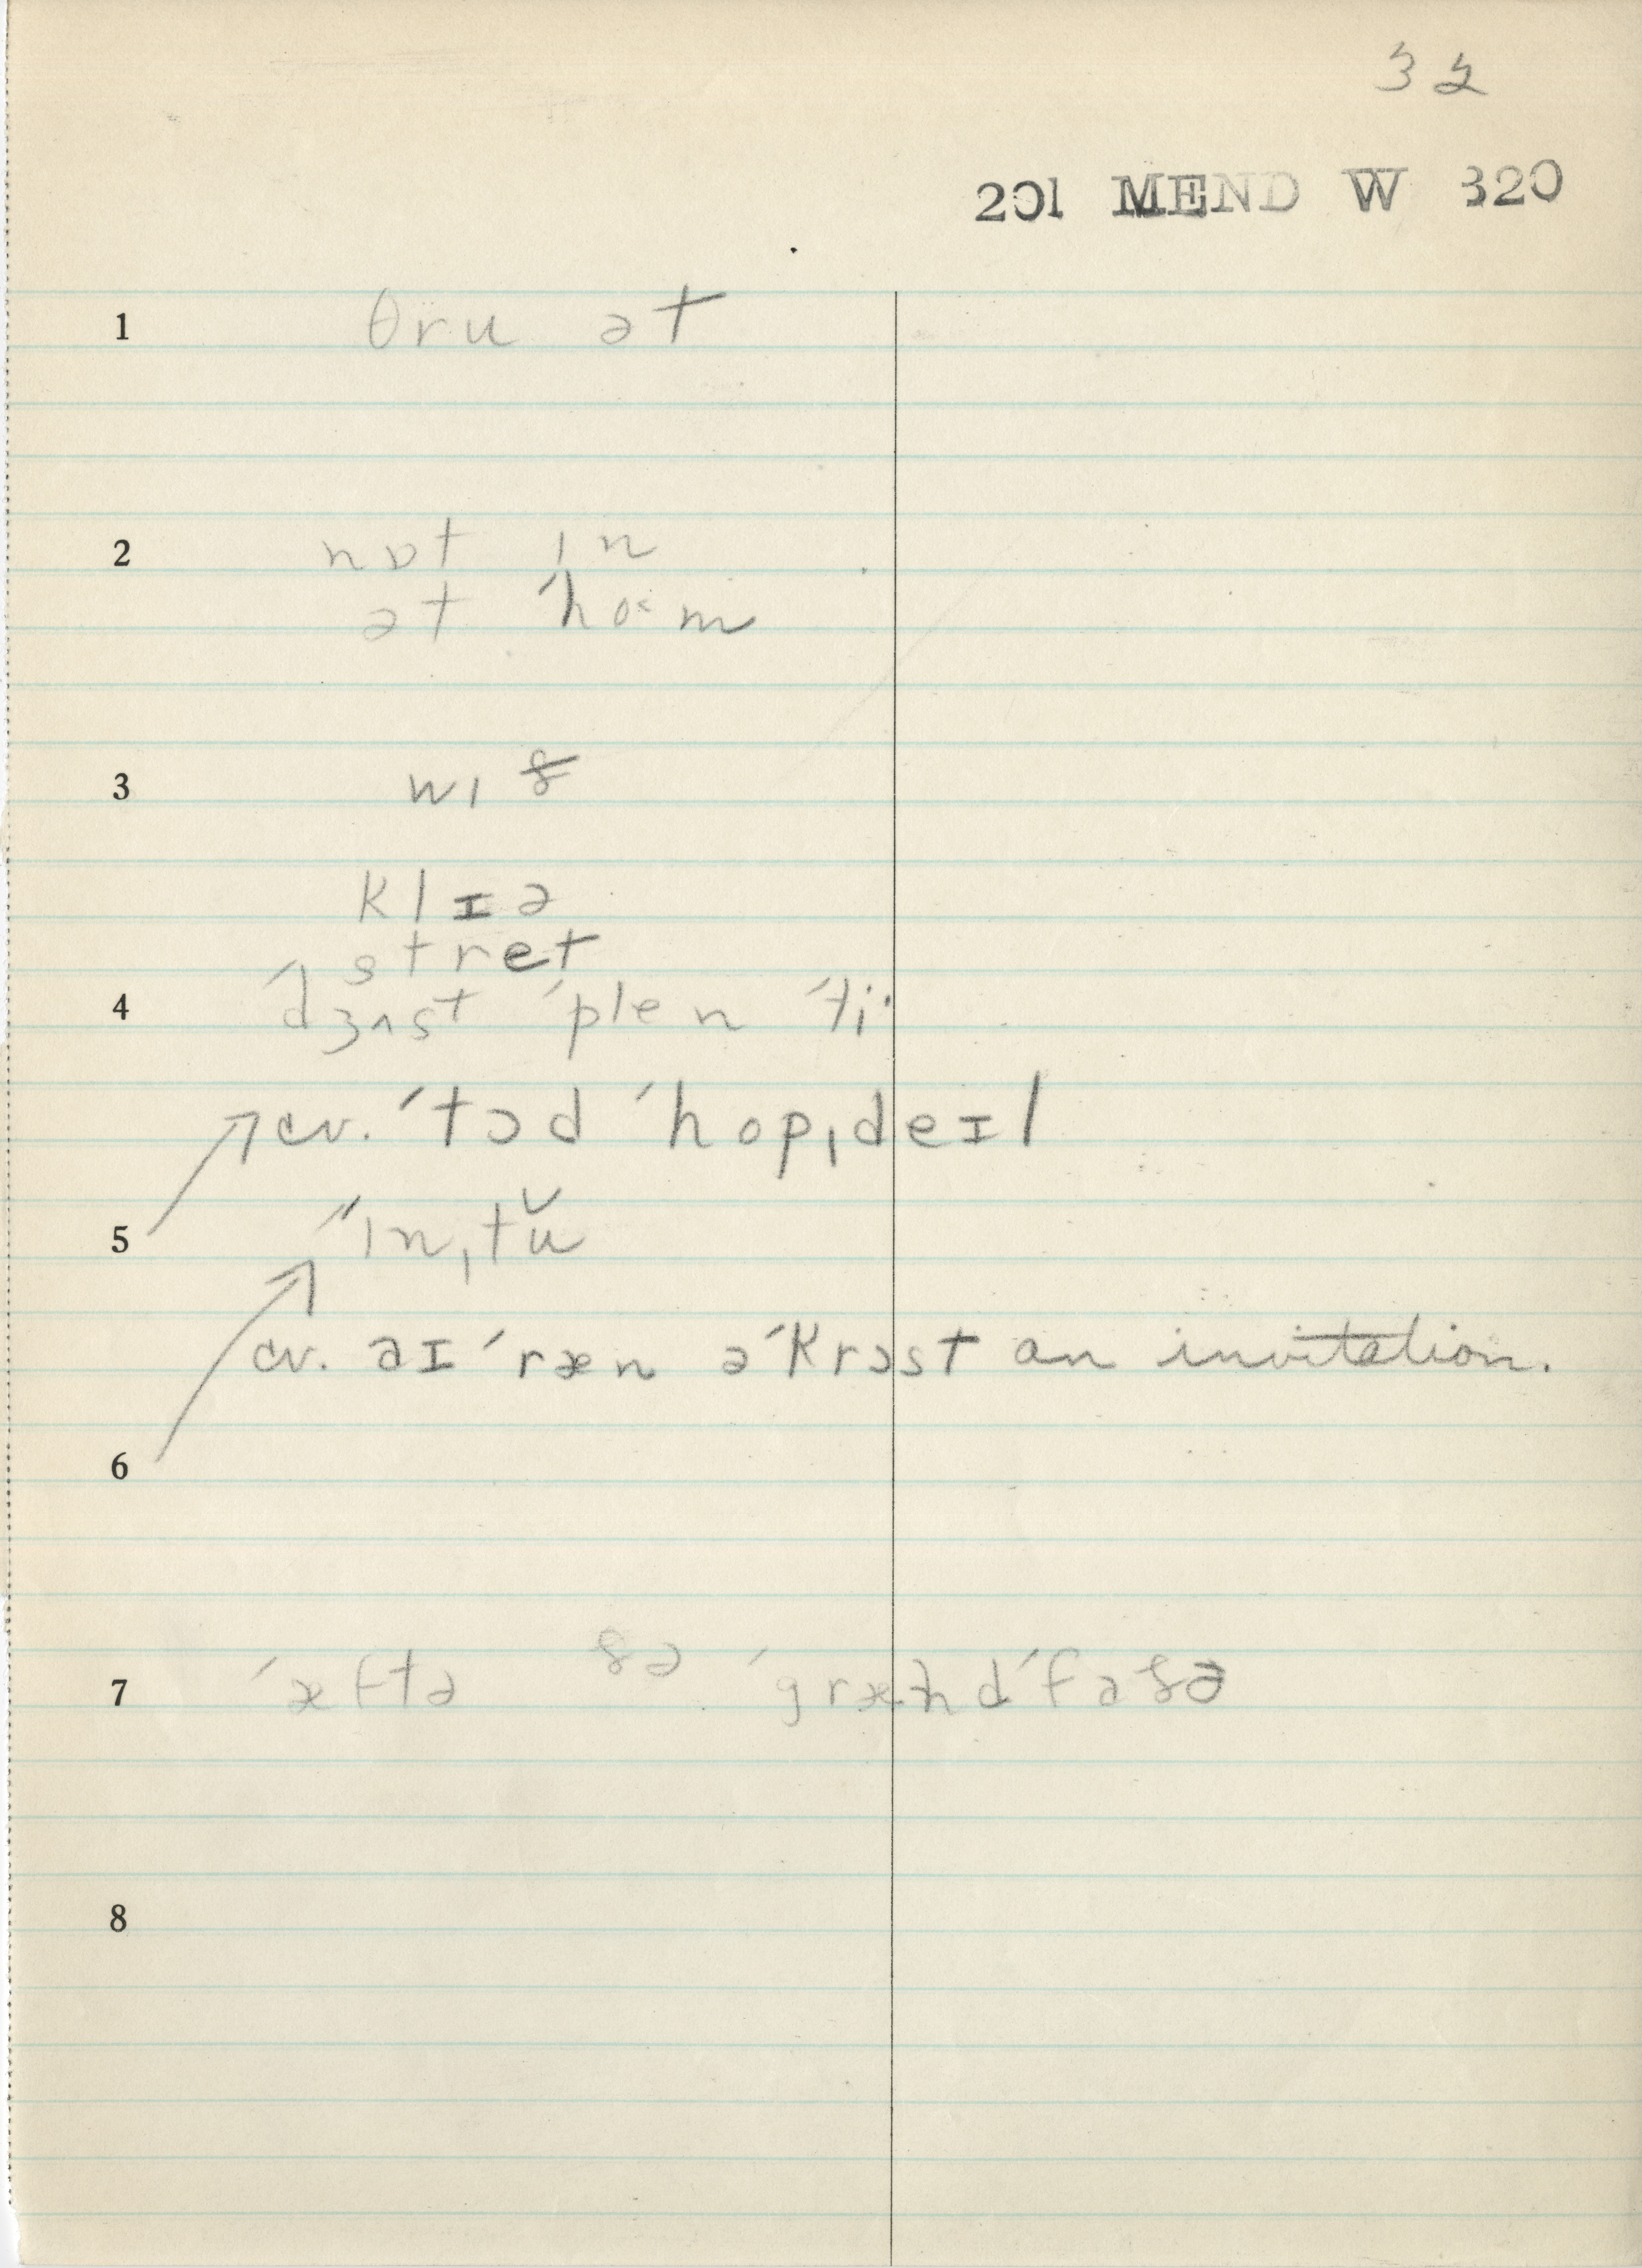 32
201 MEND W 320
1 θru ət
2 nɒt ɪn
ət ˈho˂m
3 wɪð
klɪə
stret
4 ˈdʒʌst ˈplenˈti·
cv. ˈtɔd ˈhopˌdeɪl
5 ˈˈɪnˌtŭ
cv. aɪ ˈræn əˈkrɔst an invitation.
6
7 ˈæftə ðə ˈgrændˈfaðə
8